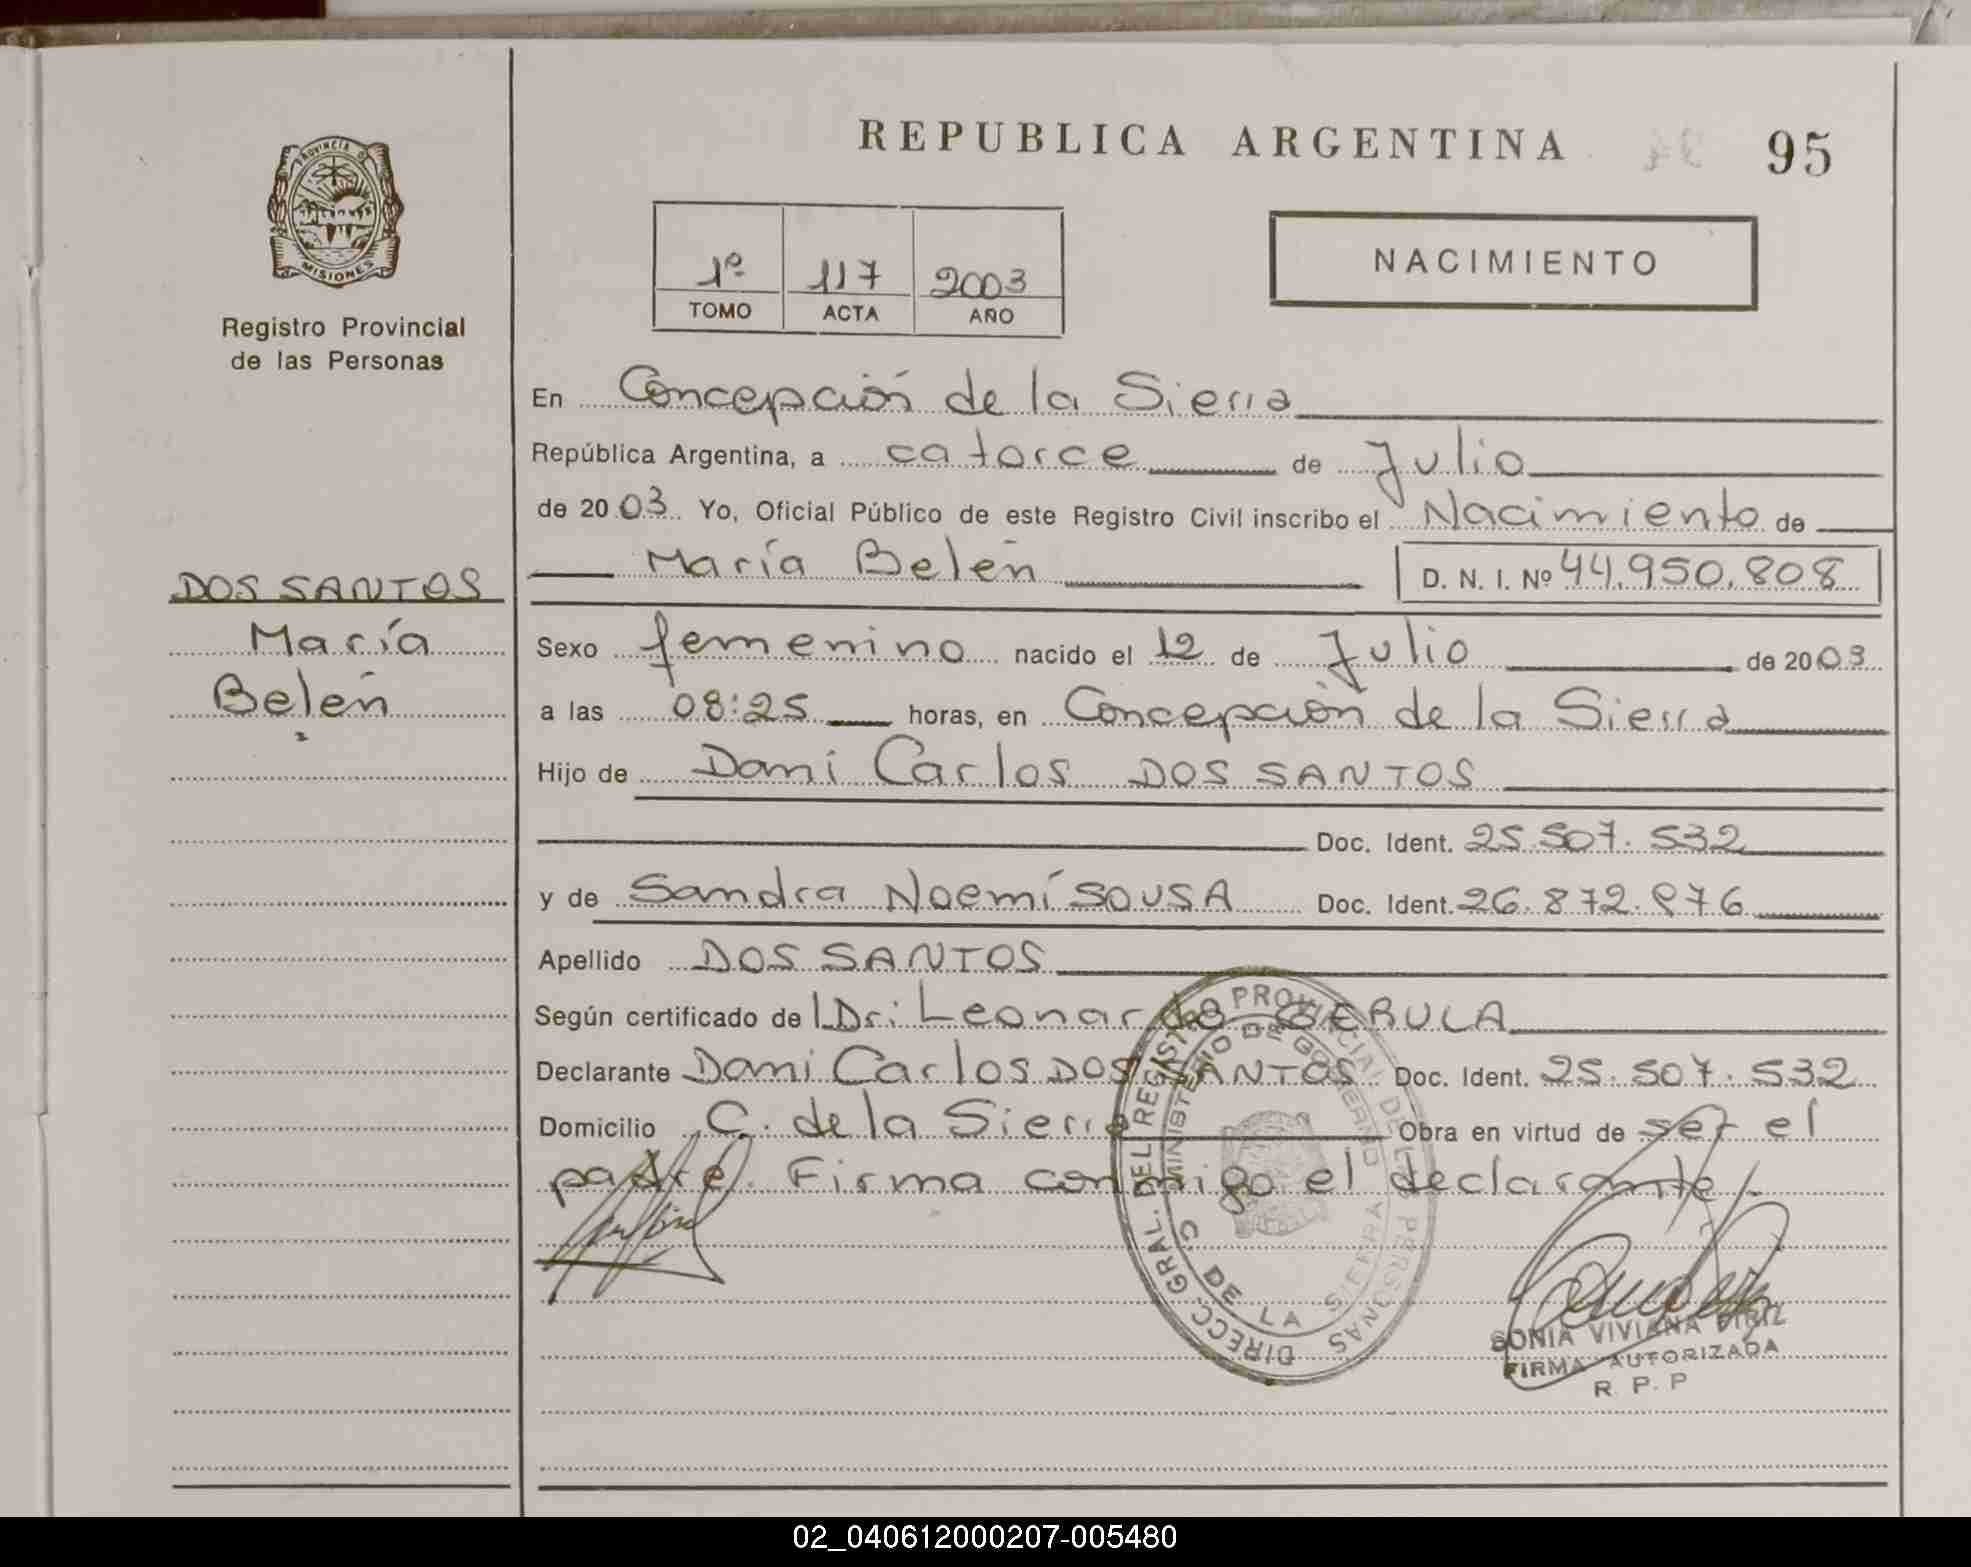 REPUBLICA ARGENTINA
95
PROVINCIA DE
MISIONES
Registro Provincial
de las Personas
1º 117 2003
TOMO ACTA AÑO
NACIMIENTO
En Concepción de la Sierra
República Argentina, a catorce de Julio
de 2003. Yo, Oficial Público de este Registro Civil inscribo el Nacimiento de
María Belén D. N. I. Nº 44.950.808
DOS SANTOS
María
Belén
Sexo femenino nacido el 12 de Julio de 2003
a las 08:25 horas, en Concepción de la Sierra
Hijo de Dami Carlos DOS SANTOS
Doc. Ident. 25.507.532
y de Sandra Noemí SOUSA Doc. Ident. 26.872.976
Apellido DOS SANTOS
Según certificado de Dr: Leonardo
Declarante Dami Carlos DOS SANTOS Doc. Ident. 25.507.532
Domicilio C. de la Sierra Obra en virtud de ser el
padre. Firma conmigo el declarante.
DIRECC. GRAL. DEL REGISTRO PROVINCIAL DE LAS PERSONAS
MINISTERIO DE GOBIERNO
C. DE LA SIERRA
SONIA VIVIANA
FIRMA AUTORIZADA
R. P. P
02_040612000207-005480